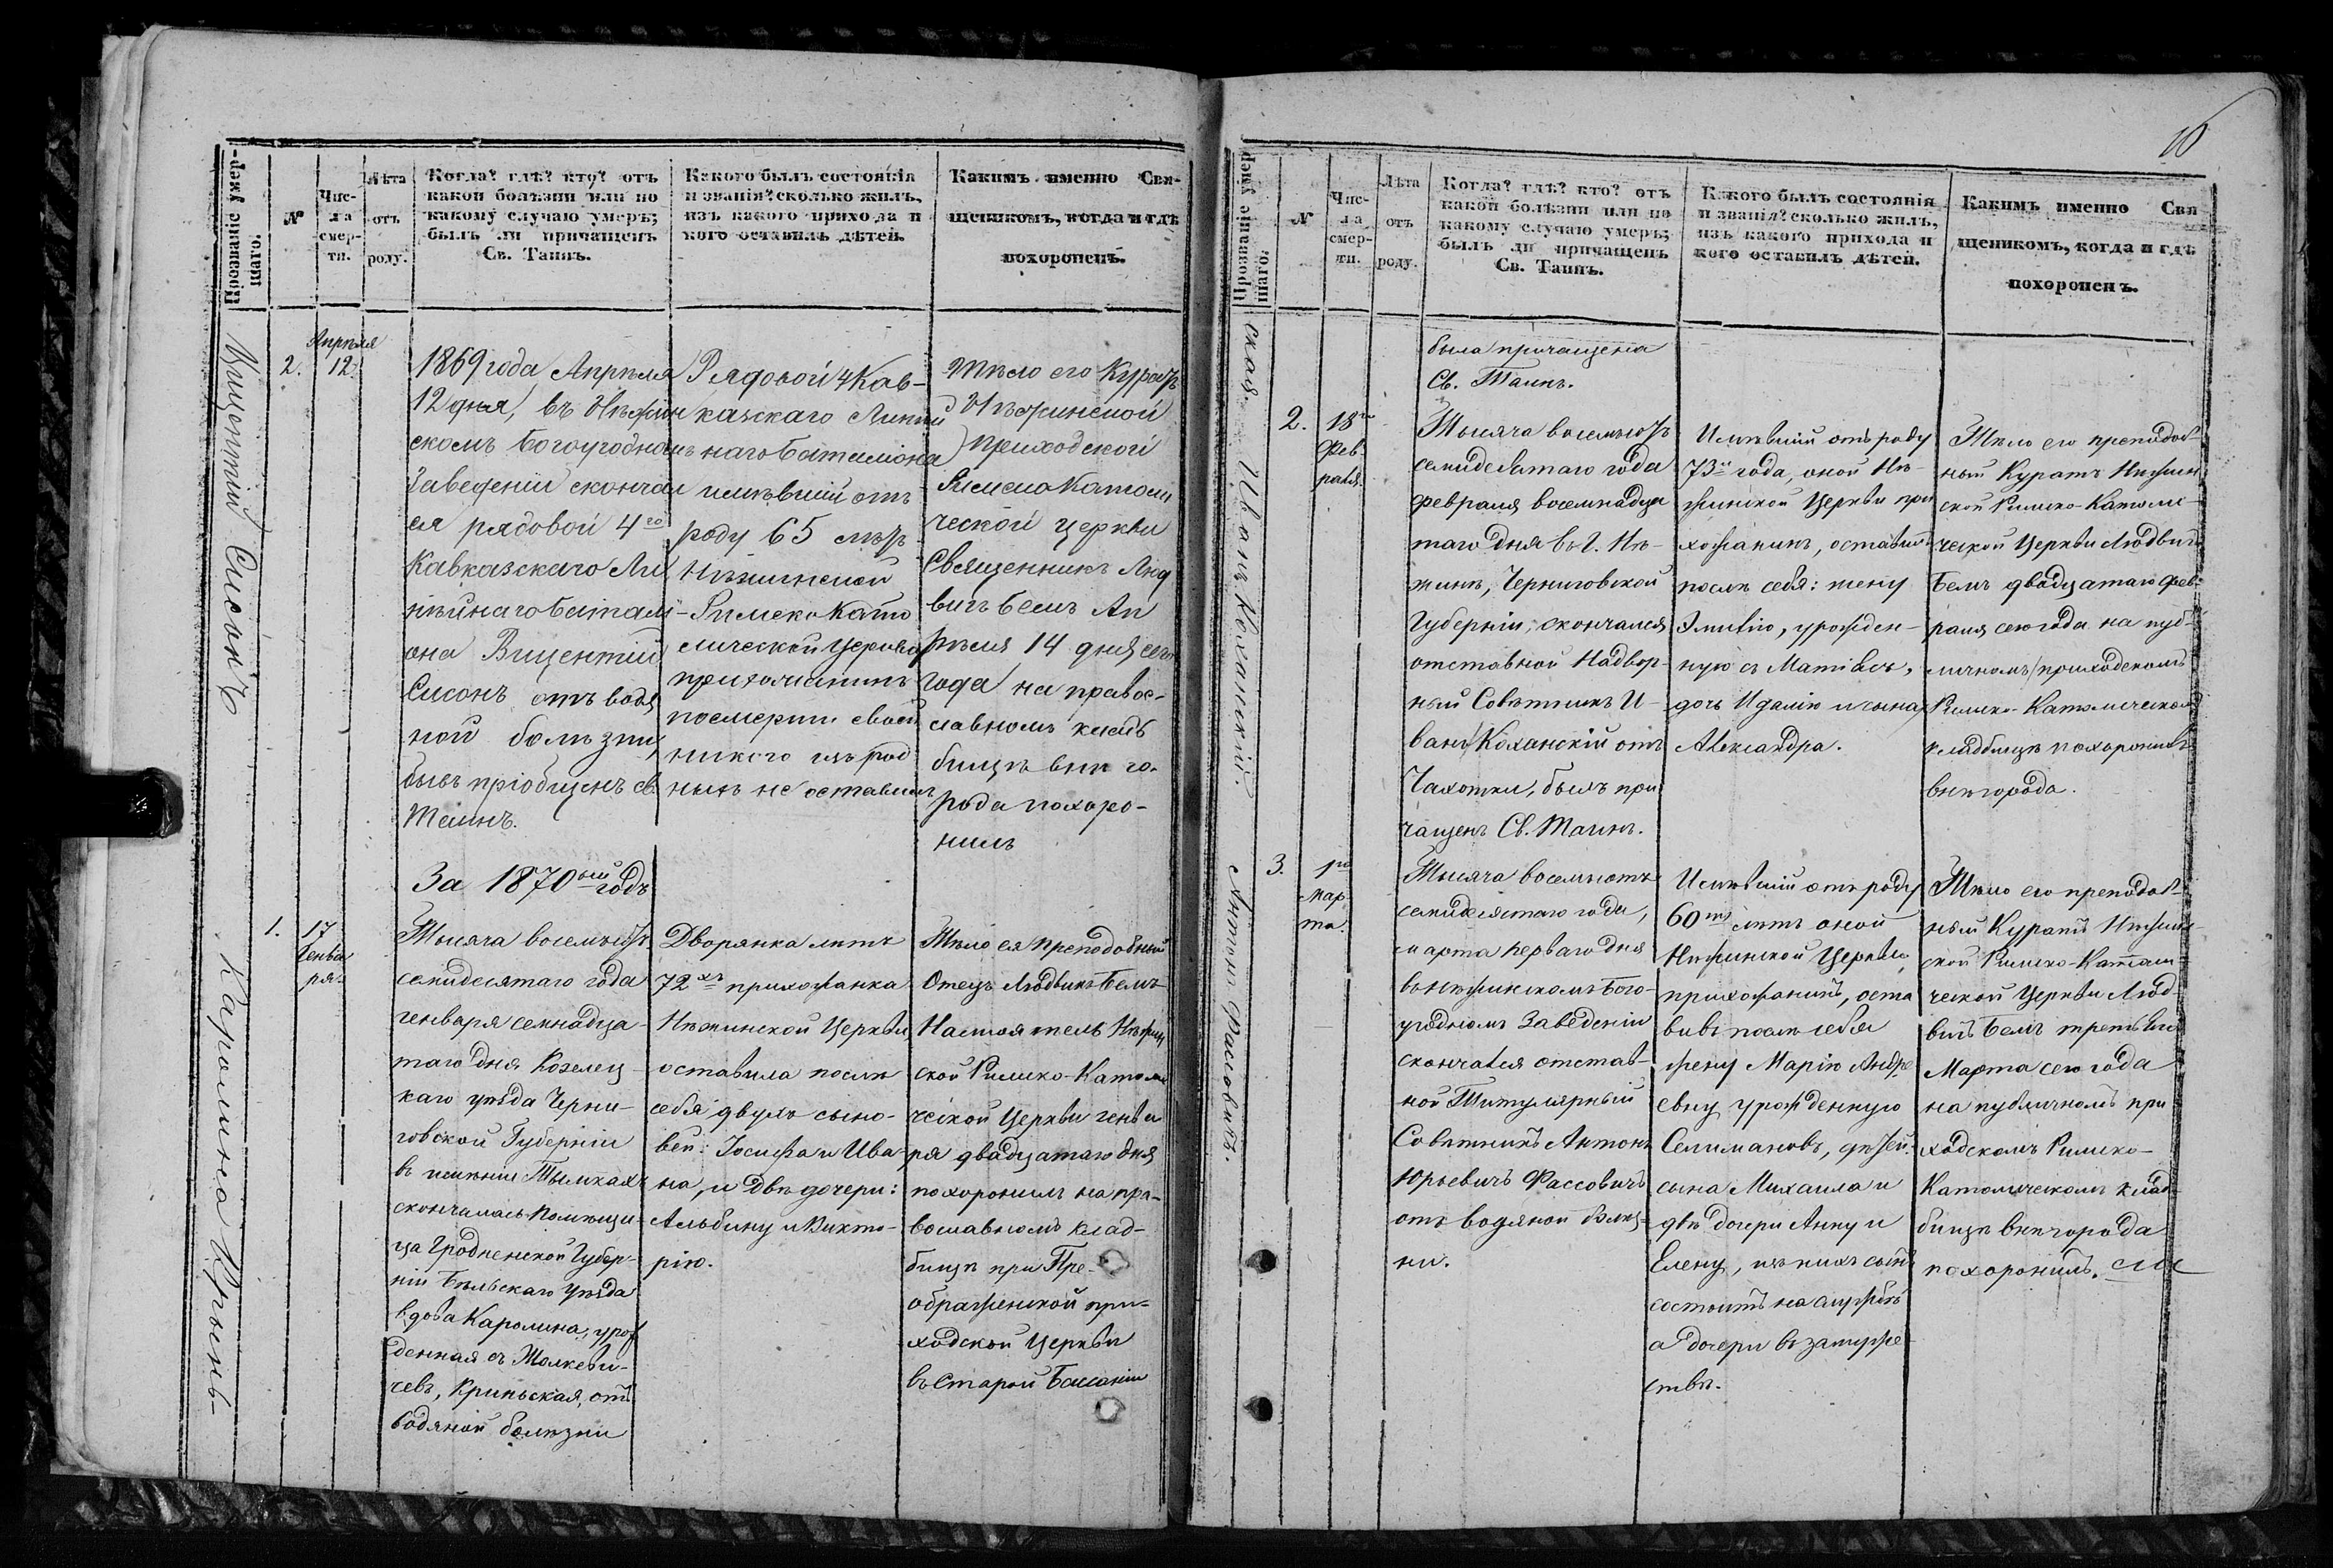 Прозваніе умер-
шаго.
№
Чис-
ла
смер-
ти.
Лѣта
отъ
роду.
Когда? гдѣ? кто? отъ
какой болѣзни или по
какому случаю умеръ;
былъ ли причащенъ
Св. Таинъ.
Какого былъ состоянія
и званія? сколько жилъ,
изъ какого прихода и
кого оставилъ дѣтей.
Какимъ именно Свя-
щенникомъ, когда и гдѣ
похороненъ.
Вицентій Сисонъ
2.
Апрѣля
12.
1869 года Апрѣля
12 дня, въ Нѣжин
скомъ Богоугодномъ
Заведеніи скончал
ся рядовой 4го
Кавказскаго Ли
нѣйнаго Баталі
она Вицентій
Сисонъ отъ водя
ной болѣзни
бывъ пріобщенъ св.
Таинъ.
Рядовой 4 Кав-
казскаго Линѣй
наго Баталіона
имѣвшій отъ
роду 65 лѣтъ
Нѣжинской
Римско Като
лической Церкви
прихожанинъ
послѣ смерти своей
никого изъ род
ныхъ не оставилъ
Тѣло его Куратъ
Нѣжинской
приходской
Римско Католи
ческой церкви
Священникъ Люд
вигъ Бемъ Ап
рѣля 14 дня сего
года на правос-
лавномъ клад
бищѣ внѣ го-
рода похоро-
нилъ
За 1870ый годъ
Каролина Крынь-
1.
17
Генва
ря.
Тысяча восемьсотъ
семидесятаго года
генваря семнадца-
таго дня Козелец-
каго уѣзда Черни-
говской Губерніи
въ имѣніи Тымкахъ
скончалась Помѣщи-
ца Гродненской Губер-
ніи Бѣльскаго Уѣзда
вдова Каролина, урож
денная съ Жолкеви-
чевъ, Криньская, отъ
водяной болѣзни
Дворянка лѣтъ
72хъ прихожанка
Нѣжинской Церкви,
оставила послѣ
себя двухъ сыно-
вей: Іосифа и Ива-
на, и двѣ дочери:
Альбину и Викто-
рію.
Тѣло ея преподобный
Отецъ Людвикъ Бемъ
Настоятель Нѣжин
ской Римско-Католи
ческой Церкви генва
ря двадцатаго дня
похоронилъ на пра-
вославномъ клад-
бищѣ при Пре-
ображенской при-
ходской Церкви
въ Старой Басани
16
Прозваніе умер-
шаго.
№
Чис-
ла
смер-
ти.
Лѣта
отъ
роду.
Когда? гдѣ? кто? отъ
какой болѣзни или по
какому случаю умеръ;
былъ ли причащенъ
Св. Таинъ.
Какого былъ состоянія
и званія? сколько жилъ,
изъ какого прихода и
кого оставилъ дѣтей.
Какимъ именно Свя
щеникомъ, когда и гдѣ
похороненъ.
ская.
была причащена
Св. Таинъ.
Иванъ Коханскій.
2.
18го
Фев-
раля.
Тысяча восемьсотъ
семидесятаго года
февраля восемнадца
таго дня въ г. Нѣ-
жинѣ, Черниговской
Губерніи, скончался
отставной Надвор-
ный Совѣтникъ И-
ванъ Коханскій отъ
Чахотки, былъ при
чащенъ Св. Таинъ.
Имѣвшій отъ роду
73и года, оной Нѣ-
жинской Церкви при
хожанинъ, оставилъ
послѣ себя: жену
Эмилію, урожден-
ную съ
дочь Идалію и сына
Александра.
Тѣло его преподоб-
ный Куратъ Нѣжин
ской Римско-Католи-
ческой Церкви Людвигъ
Бемъ двадцатаго фев-
раля сего года на пуб-
личномъ приходскомъ
Римско-Католическомъ
кладбищѣ похоронилъ
внѣ города.
Антонъ Фассовичъ.
3.
1го
Мар-
та.
Тысяча восемьсотъ
семидесятаго года,
марта перваго дня
въ Нѣжинскомъ Бого-
угодномъ Заведеніи
скончался отстав-
ной Титулярный
Совѣтникъ Антонъ
Юрьевичъ Фассовичъ
отъ водяной болѣз-
ни.
Имѣвшій отъ роду
60ть лѣтъ оной
Нѣжинской Церкви
прихожанинъ, оста
вивъ послѣ себя
жену Марію Андре
евну урожденную
Селимановъ, дѣтей:
сына Михаила и
двѣ дочери Анну и
Елену, изъ нихъ сынъ
состоитъ на службѣ
а дочери въ замуже-
ствѣ.
Тѣло его преподоб-
ный Куратъ Нѣжин-
ской Римско-Католи-
ческой Церкви Люд-
вигъ Бемъ третьяго
Марта сего года
на публичномъ при
ходскомъ Римско-
Католическомъ клад-
бищѣ внѣ города
похоронилъ.